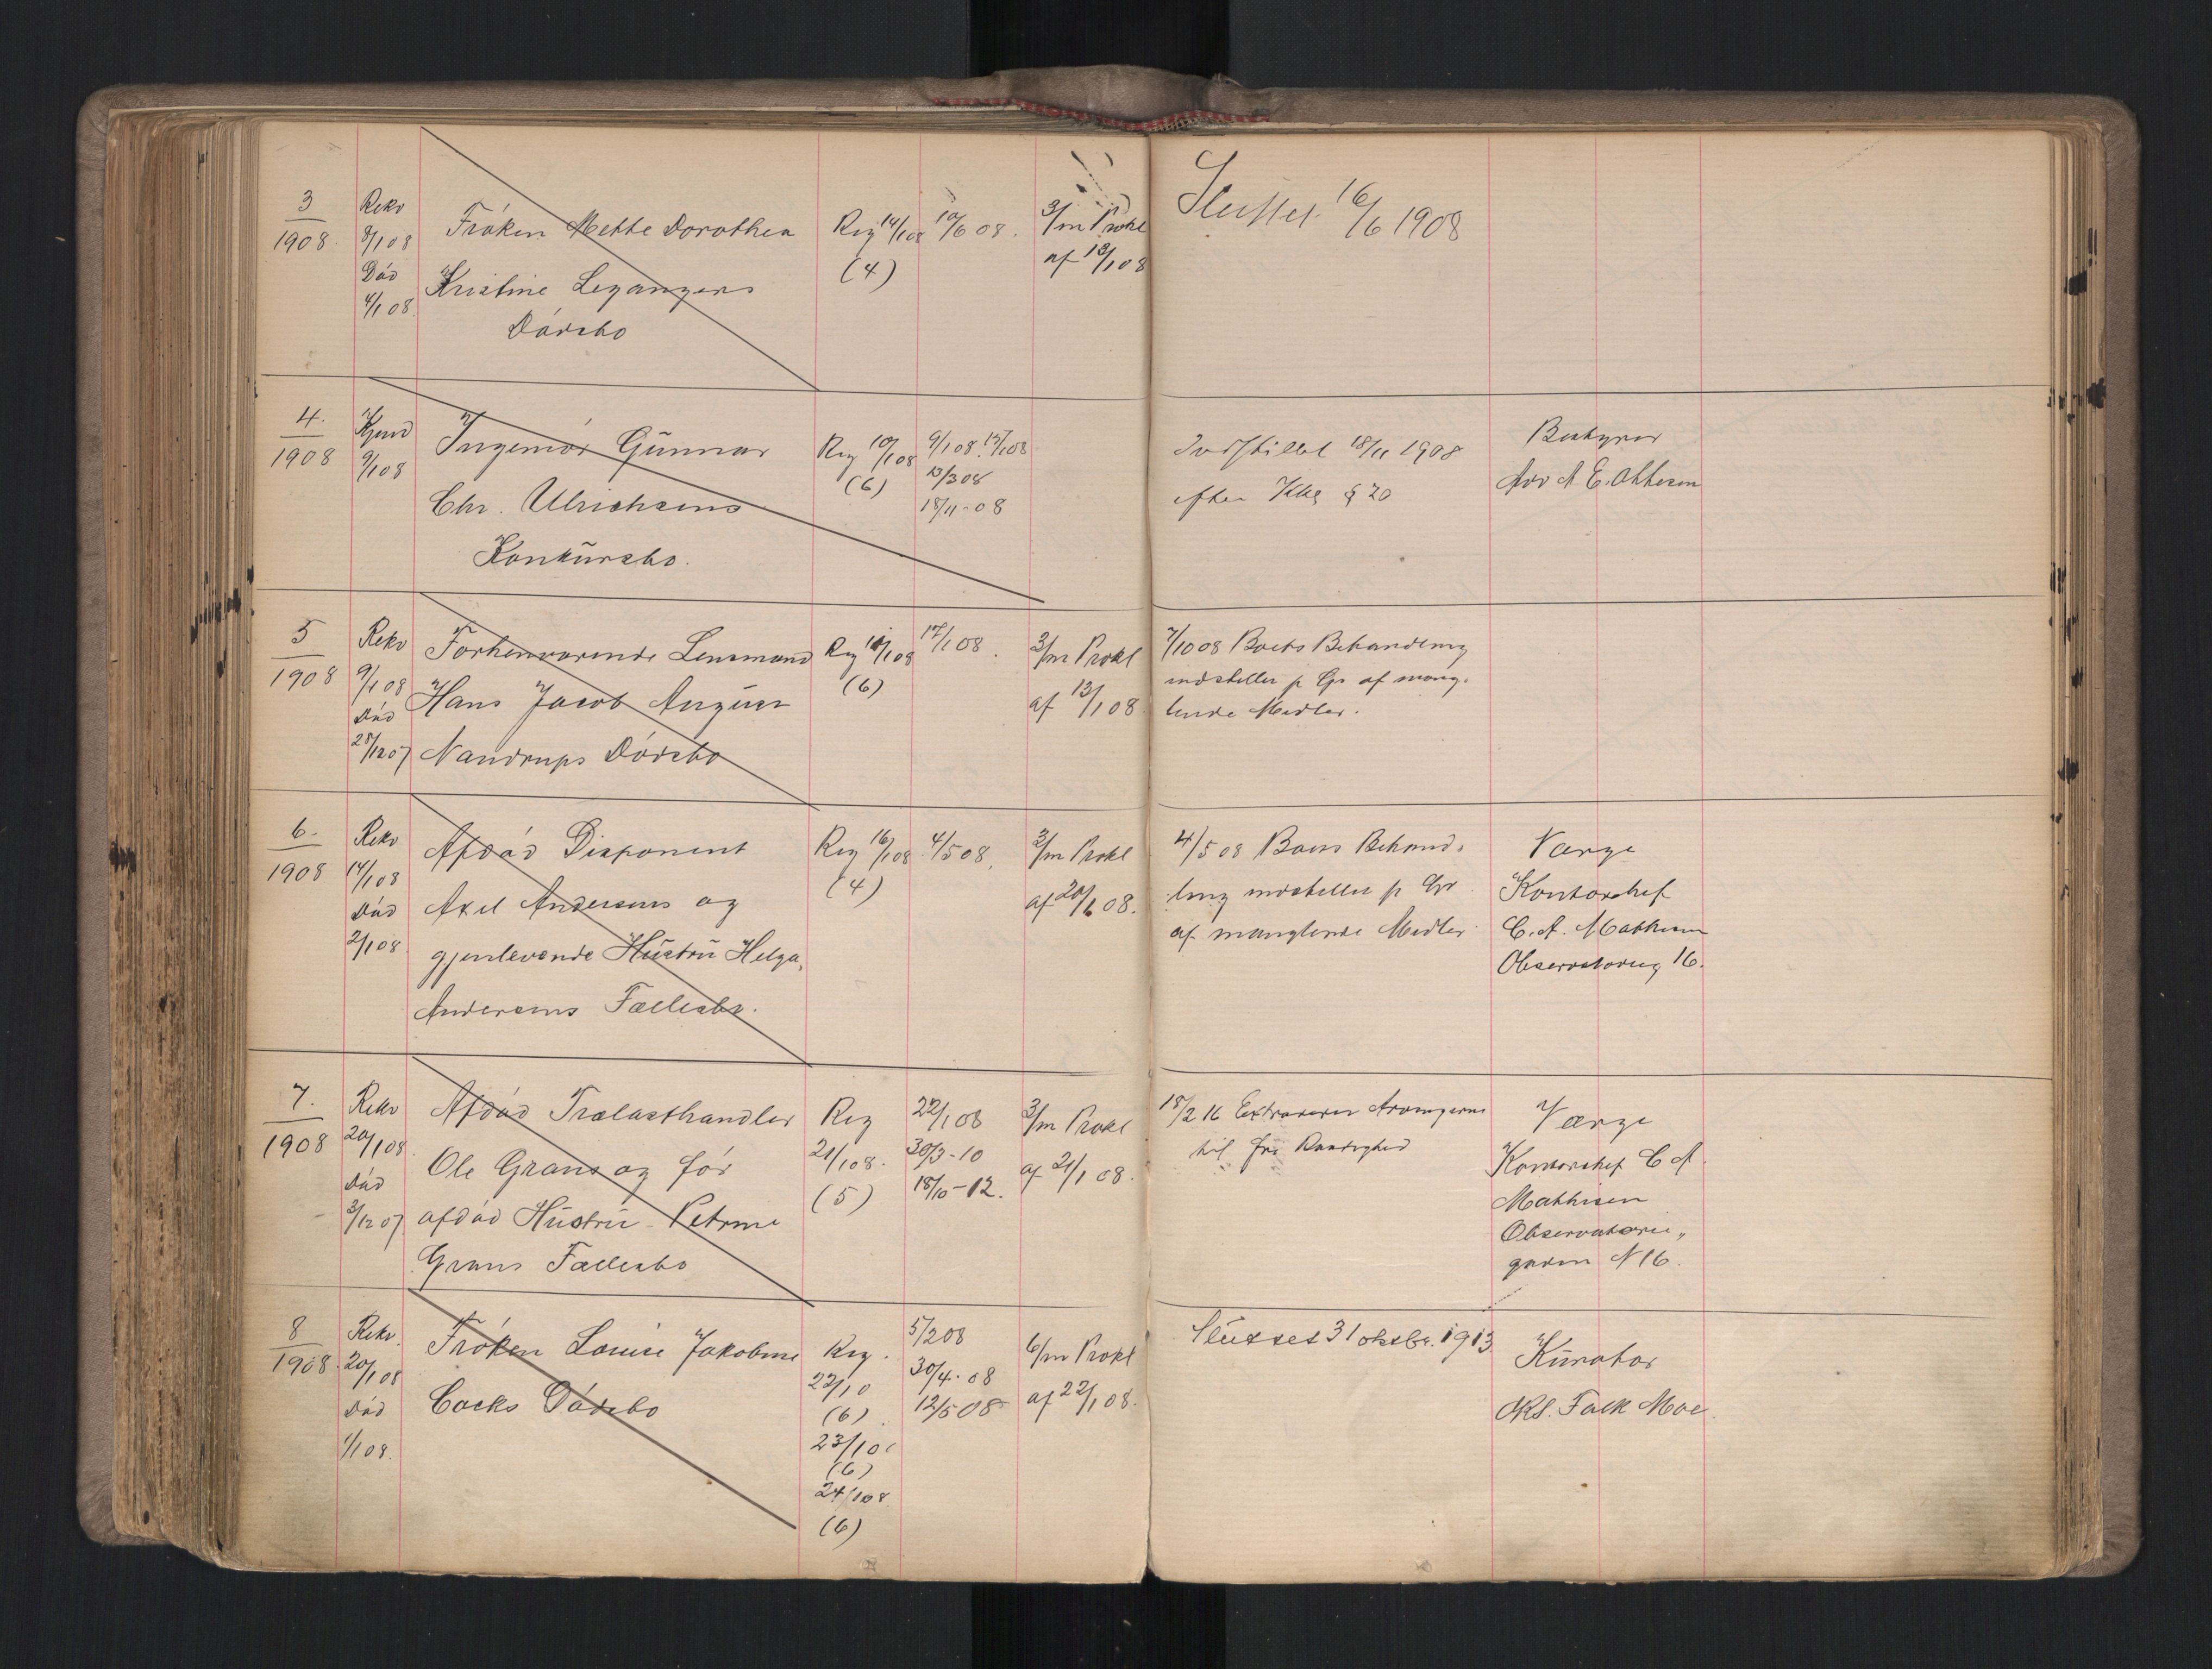 3
1908.
Rekv
8/1 08
Død
4/1 08.
Frøken Mette Dorothea
Kristine Legangers
Dødsbo
Reg 14/1 08
(4)
10/6 08.
3/m Prokl
af 13/1 08
Sluttet 16/6 1908
4.
1908
Kjend
9/1 08
Ingeniør Gunnar
Chr. Ulrichsens
Konkursbo.
Reg 10/1 08
(6)
9/1 08. 17/1 08
13/3 08
18/11-08
Indstillet 18/11 1908
efter Kkl § 20
Bestyrer
Adv A E. Ottesen
5
1908
Rekv
9/1 08
Død
28/12 07
Forhenværende Lensmand
Hans Jacob August
Nandrups Dødsbo
Reg 11/1 08
(6)
17/1 08.
3/m Prokl
af 13/1 08
7/10 08 Boets Behandling
indstilles p Gr af mang-
lende Midler.
6.
1908
Rekv
14/1 08
Død
2/1 08.
Afdød Disponent
Axel Andersens og
gjenlevende Hustru Helga
Andersens Fællesbo.
Reg 16/1 08
(4)
4/5 08.
3/m Prokl
af 20/1 08.
4/5 08 Boets Behand-
ling indstilles p Gr
af manglende Midler
Værge
Kontorchef
C. A. Mathisen
Observatorieg 16.
7.
1908
Rekv
20/1 08.
Død
3/12 07
Afdød Trælasthandler
Ole Grans og før
afdød Hustru Petrine
Grans Fællesbo
Reg
21/1 08.
(5)
22/1 08
30/3-10
18/10-12.
3/m Prokl
af 21/1 08.
18/2 16 Extraderes Arvingerne
til fri Raadighed
Værge
Kontorchef C A
Mathisen
Observatorie„
gaden N 16.
8
1908.
Rekv.
20/1 08
Død
1/1 08.
Frøken Louise Jakobine
Cocks Dødsbo
Reg.
22/1 0
(6)
23/1 0
(6)
24/1 08
(6)
5/2 08
30/4-08
12/5 08
6/m Prokl
af 22/1 08.
Sluttet 31 oktbr. 1913
Kurator
Falk Moe